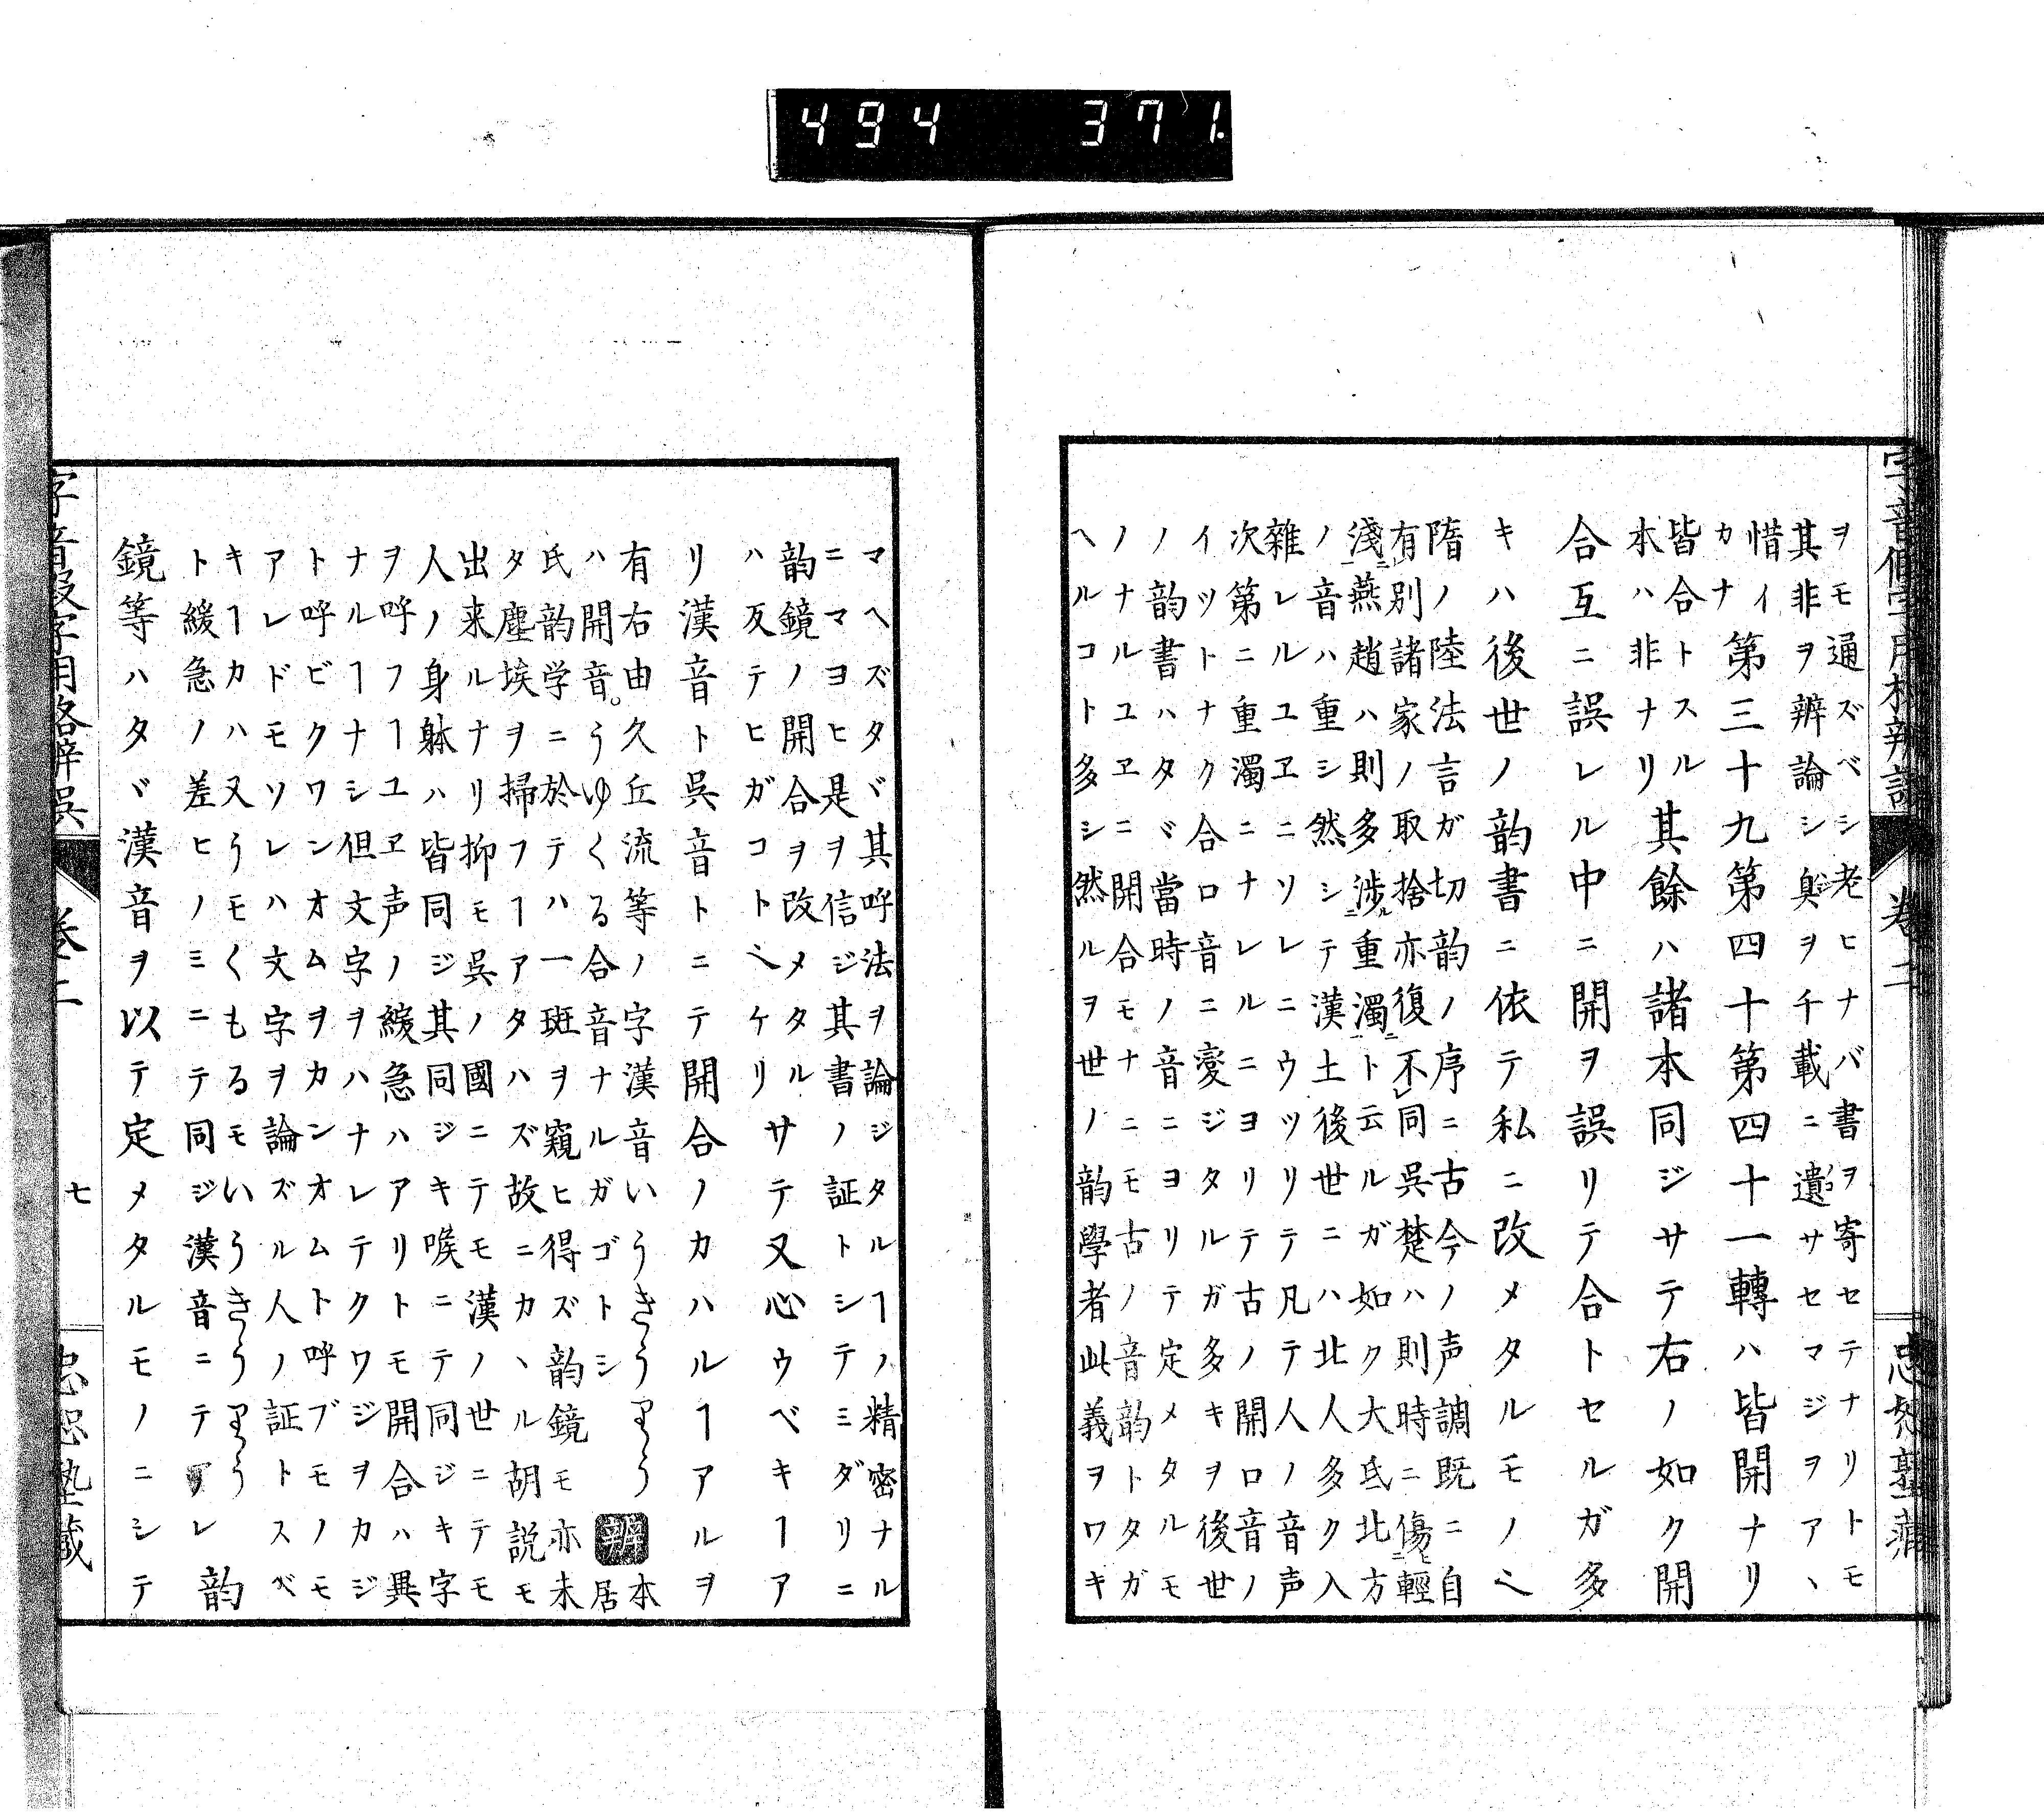 494 371.
字音假字用格辨誤 卷二 忠恕塾藏
ヲモ通ズベシ老ヒナバ書ヲ寄セテナリトモ
其非ヲ辨論シ臭ヲ千載ニ遺サセマジヲアヽ
惜イ
カナ
第三十九第四十第四十一轉ハ皆開ナリ
皆合トスル
本ハ非ナリ
其餘ハ諸本同ジサテ右ノ如ク開
合互ニ誤レル中ニ開ヲ誤リテ合トセルガ多
キハ後世ノ韵書ニ依テ私ニ改メタルモノ也
隋ノ陸法言ガ切韵ノ序ニ古今ノ声調既ニ自
有別諸家ノ取捨亦復不同呉楚ハ則時ニ傷輕
淺燕趙ハ則多渉重濁ト云ルガ如ク大氐北方
ノ音ハ重シ然シテ漢土後世ニハ北人多ク入
雜レルユヱニソレニウツリテ凡テ人ノ音声
次第ニ重濁ニナレルニヨリテ古ノ開口音ノ
イツトナク合口音ニ變ジタルガ多キヲ後世
ノ韵書ハタヾ當時ノ音ニヨリテ定メタルモ
ノナルユヱニ開合モナニモ古ノ音韵トタガ
ヘルコト多シ然ルヲ世ノ韵學者此義ヲワキ
マヘズタヾ其呼法ヲ論ジタルヿノ精密ナル
ニマヨヒ是ヲ信ジ其書ノ証トシテミダリニ
韵鏡ノ開合ヲ改メタル
ハ反テヒガコト也ケリ
サテ又心ウベキヿア
リ漢音ト呉音トニテ開合ノカハルヿアルヲ
有右由久丘流等ノ字漢音いうきうりう
ハ開音。うゆくる合音ナルガゴトシ
辨 本
居
氏韵学ニ於テハ一斑ヲ窺ヒ得ズ韵鏡モ亦未
タ塵埃ヲ掃フヿアタハズ故ニカヽル胡説モ
出来ルナリ抑モ呉ノ國ニテモ漢ノ世ニテモ
人ノ身躰ハ皆同ジ其同ジキ喉ニテ同ジキ字
ヲ呼フヿユヱ声ノ緩急ハアリトモ開合ハ異
ナルヿナシ但文字ヲハナレテクワジヲカジ
ト呼ビクワンオムヲカンオムト呼ブモノモ
アレドモソレハ文字ヲ論ズル人ノ証トスベ
キヿカハ又うモくもるモいうきうりう
ト緩急ノ差ヒノミニテ同ジ漢音ニテアレ
韵
鏡等ハタヾ漢音ヲ以テ定メタルモノニシテ
字音假字用格辨誤 卷二 七 忠恕塾藏